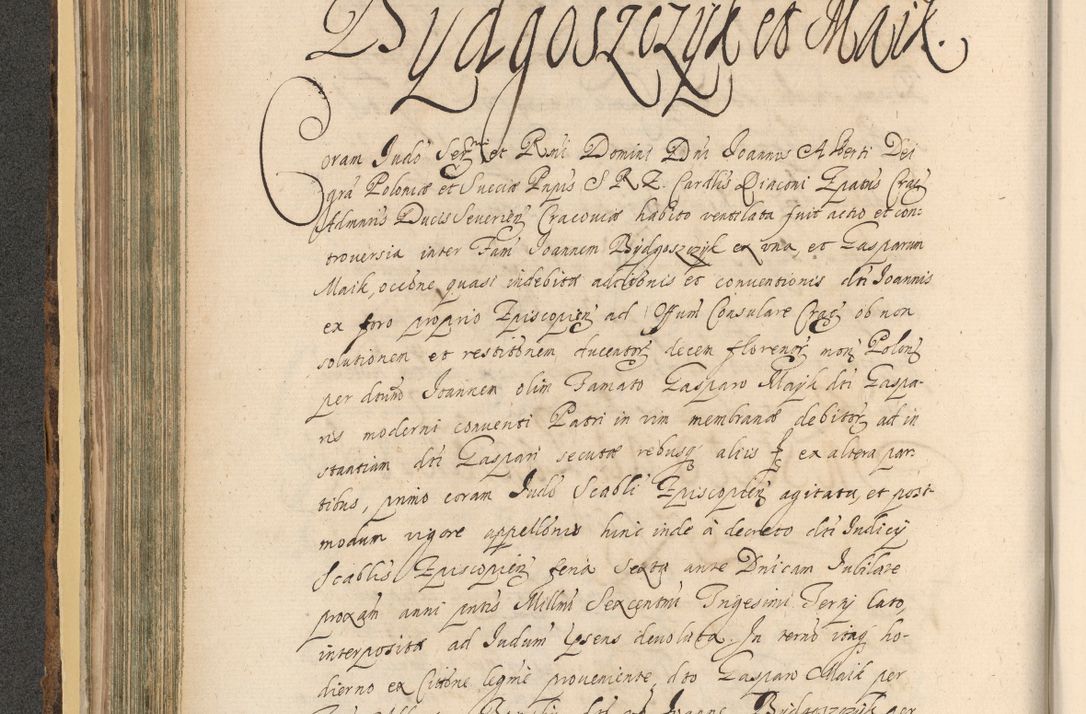 Bydgoszczyk et Maik.
Coram Judo Sermi et Rmi Domini Dni Joannis Alberti Dei
gra Poloniæ et Sueciæ Pnpis S R E Cardlis Diaconi Epatus Crac
Admnris Ducis Severien Cracoviæ habito ventilata fuit actio et con:
troversia inter Fam Joannem Bydgoszczyk ex vna, et Gasparum
Maik, occõne quasi indebitæ adctionis et conventionis dti Joannis
ex foro proprio Episcopien ad Offum Consulare Crac ob non
solutionem et restitõnem ducentor decem florenor mon Polon
per dtum Joannem olim Famato Gasparo Mayk dti Gaspa-
ris moderni conventi Patri in vim membranæ debitor ad in
stantiam dti Gaspari secutæ rebusq aliis ex altera par:
tibus, primo coram Judo Scabli Episcopien agitata, et post
modum vigore appellõnis hinc inde à decreto dti Judicij
Scablis Episcopien feria Sexta ante Dnicam Jubilate
proxam anni pntis Millmi Sexcentmi Trigesimi Terij lato,
interpositæ ad Judum ipsens devoluta. In termo itaq ho-
dierno ex Citõne legme proveniente, dto Gasparo Maik per
Joanne Bydgoszczyk per